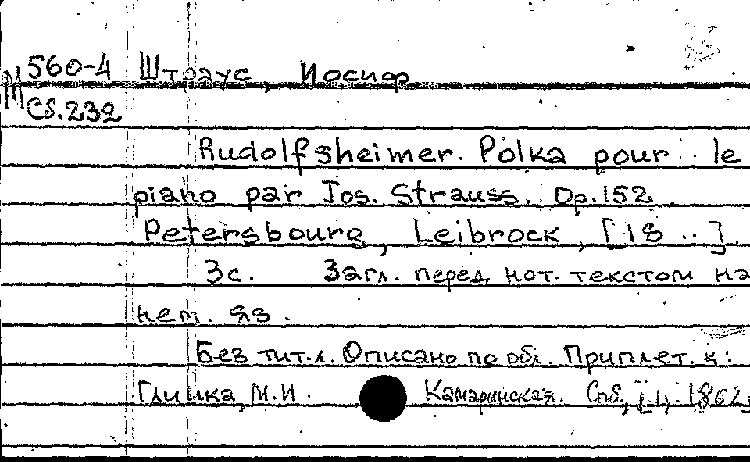 М 560-4 Штраус, Иосиф
Cs.232
Rudolfsheimer. Polka pour le
piano par Jos. Strauss. Op.152.
Petersbourg, Leibrock, [18 ..].
3с. Загл. перед нот. текстом на
нем. яз.
Без тит. л. Описано по обл. Приплет. к:
Глинка, М.И. Камаринская. Спб., 1862.